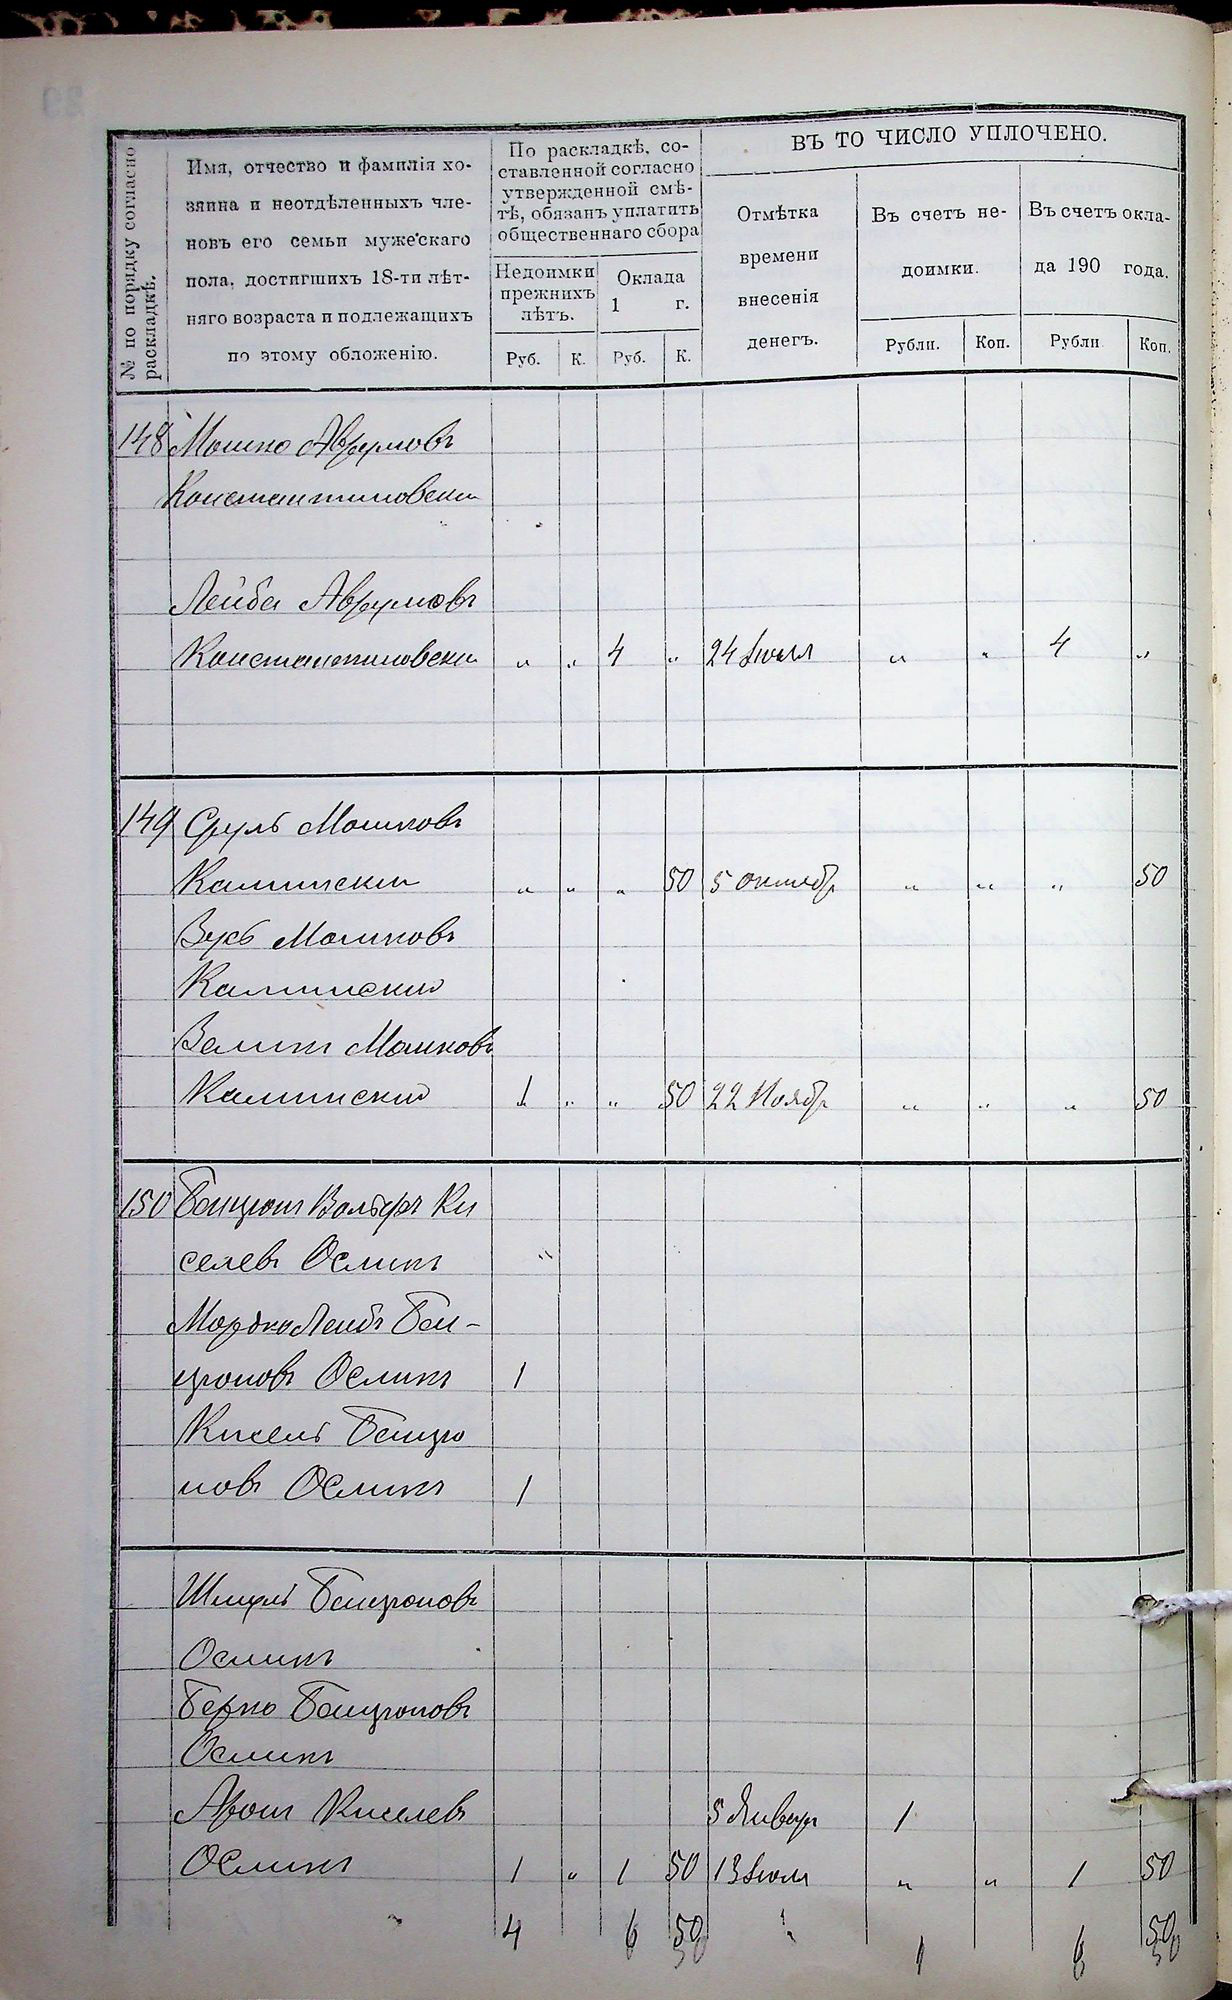 № по порядку согласно раскладкѣ.
Имя, отчество и фамилія хо-
зяина и неотдѣленныхъ чле-
новъ его семьи мужескаго
пола, достигшихъ 18-ти лѣт-
няго возраста и подлежащихъ
по этому обложенію.
По раскладкѣ, со-
ставленной согласно
утвержденной смѣ-
тѣ, обязанъ уплатить
общественнаго сбора
Недоимки прежнихъ лѣтъ.
Оклада 1 г.
Руб. К. Руб. К.
ВЪ ТО ЧИСЛО УПЛОЧЕНО.
Отмѣтка времени внесенія денегъ.
Въ счетъ не-
доимки.
Въ счетъ окла-
да 190 года.
Рубли. Коп. Рубли Коп.
148 Мошко Аврумовъ
Константиновски
Лейба Аврумовъ
Константиновски " " 4 " 24 Іюля " " 4 "
149 Сруль Мошковъ
Камински " " " 50 5 октябр " " " 50
Вукъ Мошковъ
Каминский
Велить Мошковъ
Каминский 1 " " 50 22 Ноябр " " " 50
150 Бенціонъ Вольфъ Ки
селевъ Ослинъ "
Мордко Лейбъ Бен-
ціоновъ Ослинъ 1
Кисель Бенціо
новъ Ослинъ 1
Шмуль Бенціоновъ
Ослинъ
Берко Бенціоновъ
Ослинъ
Аронъ Киселевъ 5 Январ 1
Ослинъ 1 " 1 50 13 Іюля " " 1 50
4 6 50 1 6 50
50 50